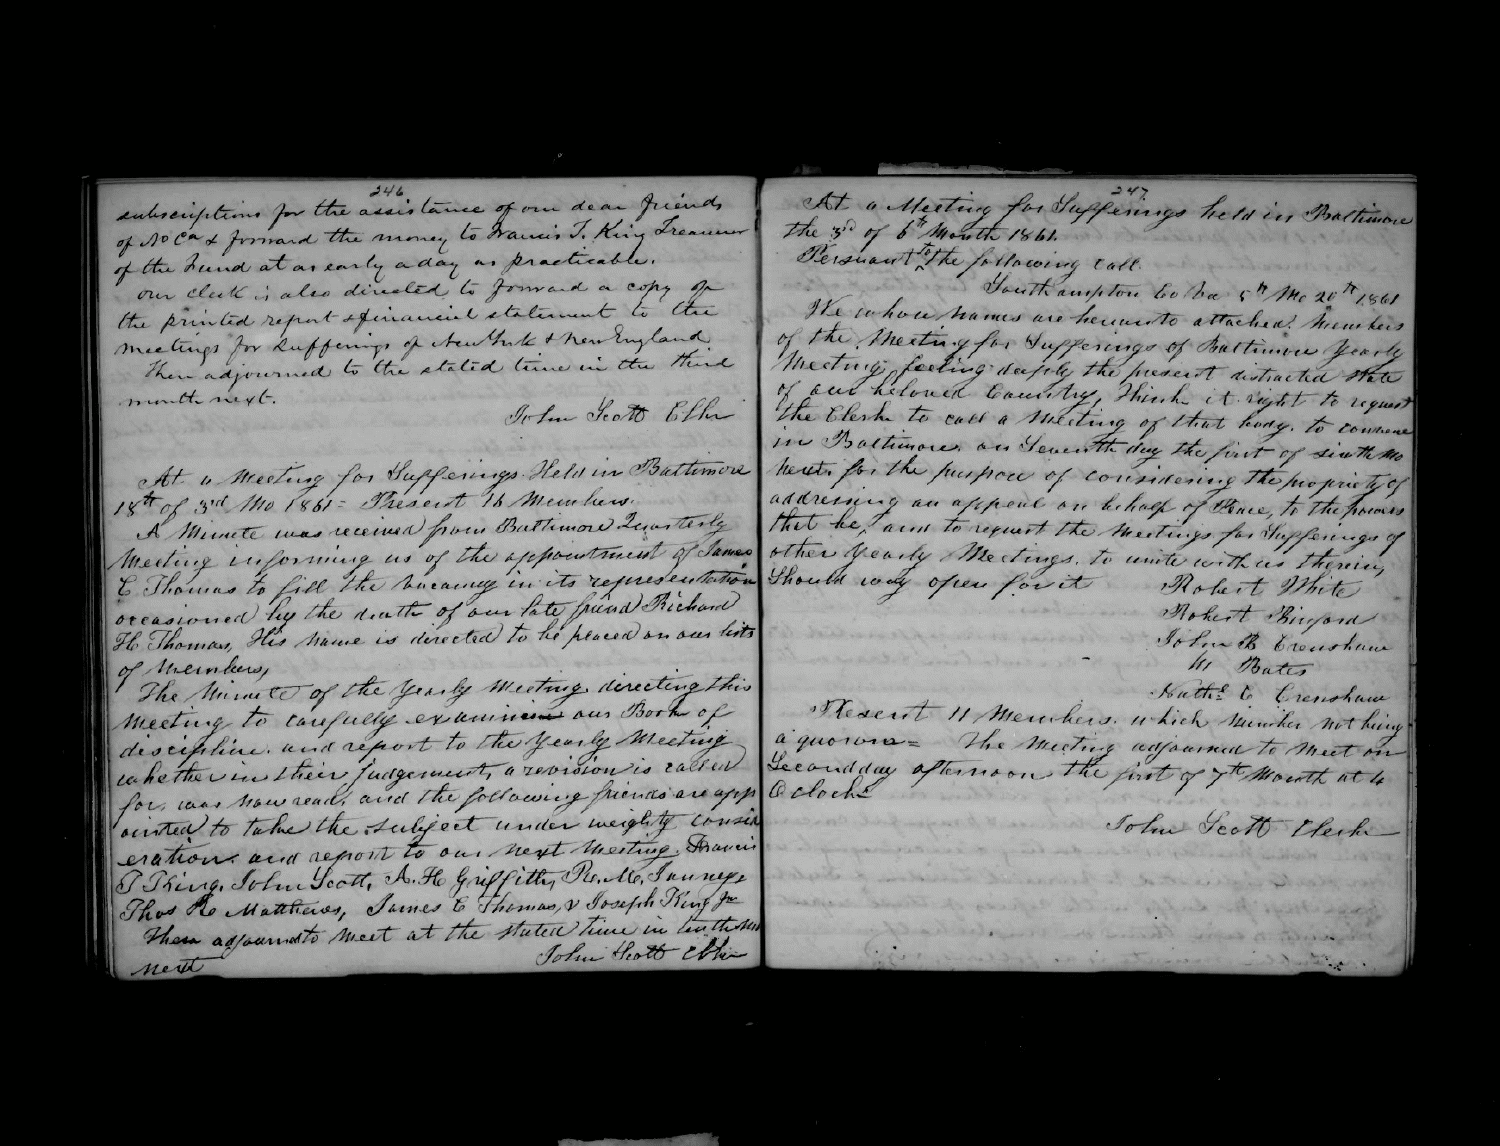 246
subscriptions for the assistance of our dear friends
of No Ca & forward the money to Francis T. King Treasurer
of the Fund at as early a day as practicable.
our clerk is also directed to forward a copy of
the printed report & financial statement to the
meetings for sufferings of New York & New England
Then adjourned to the stated time in the third
month next.
John Scott Clk
At a Meeting for Sufferings Held in Baltimore
18th of 3rd Mo 1861 = Present 16 Members.
A Minute was received from Baltimore Quarterly
Meeting informing us of the appointment of James
C. Thomas to fill the vacancy in its representation
occasioned by the death of our late friend Richard
H. Thomas, His name is directed to be placed on our lists
of members,
The Minute of the Yearly Meeting directing this
meeting to carefully examine our Book of
discipline. and report to the Yearly Meeting
whether in their judgement, a revision is called
for, was now read, and the following friends are app
ointed to take the subject under weighty consid
eration. and report to our next Meeting. Francis
T King, John Scott, A. H Griffith, R. M. Janney,
Thos R Matthews, James C Thomas, & Joseph King Jr
Then adjourned to meet at the stated time in tenth Mo
next
John Scott Clk
247
At a Meeting for Sufferings held in Baltimore
the 3rd of 6th Month 1861.
Persuant to the following call.
Southampton Co Va 5th Mo 20th 1861
We whose names are hereunto attached. Members
of the Meeting for Sufferings of Baltimore Yearly
Meeting, feeling deeply the present distracted state
of our beloved Country, Think it right to request
the Clerk to call a Meeting of that body. to convene
in Baltimore. on Seventh day the first of sixth mo
next. for the purpose of considering the propriety of
addressing an appeal on behalf of Peace, to the powers
that be, and to request the Meetings for Sufferings of
other Yearly Meetings. to unite with us therein,
Should way open for it
Robert White
Robert Binford
John B Crenshaw
W Bates
Nathl C Crenshaw
Present 11 Members. which number not being
a quorum = The Meeting adjourned to meet on
Second day afternoon the first of 7th Month at 4
O clock =
John Scott Clerk